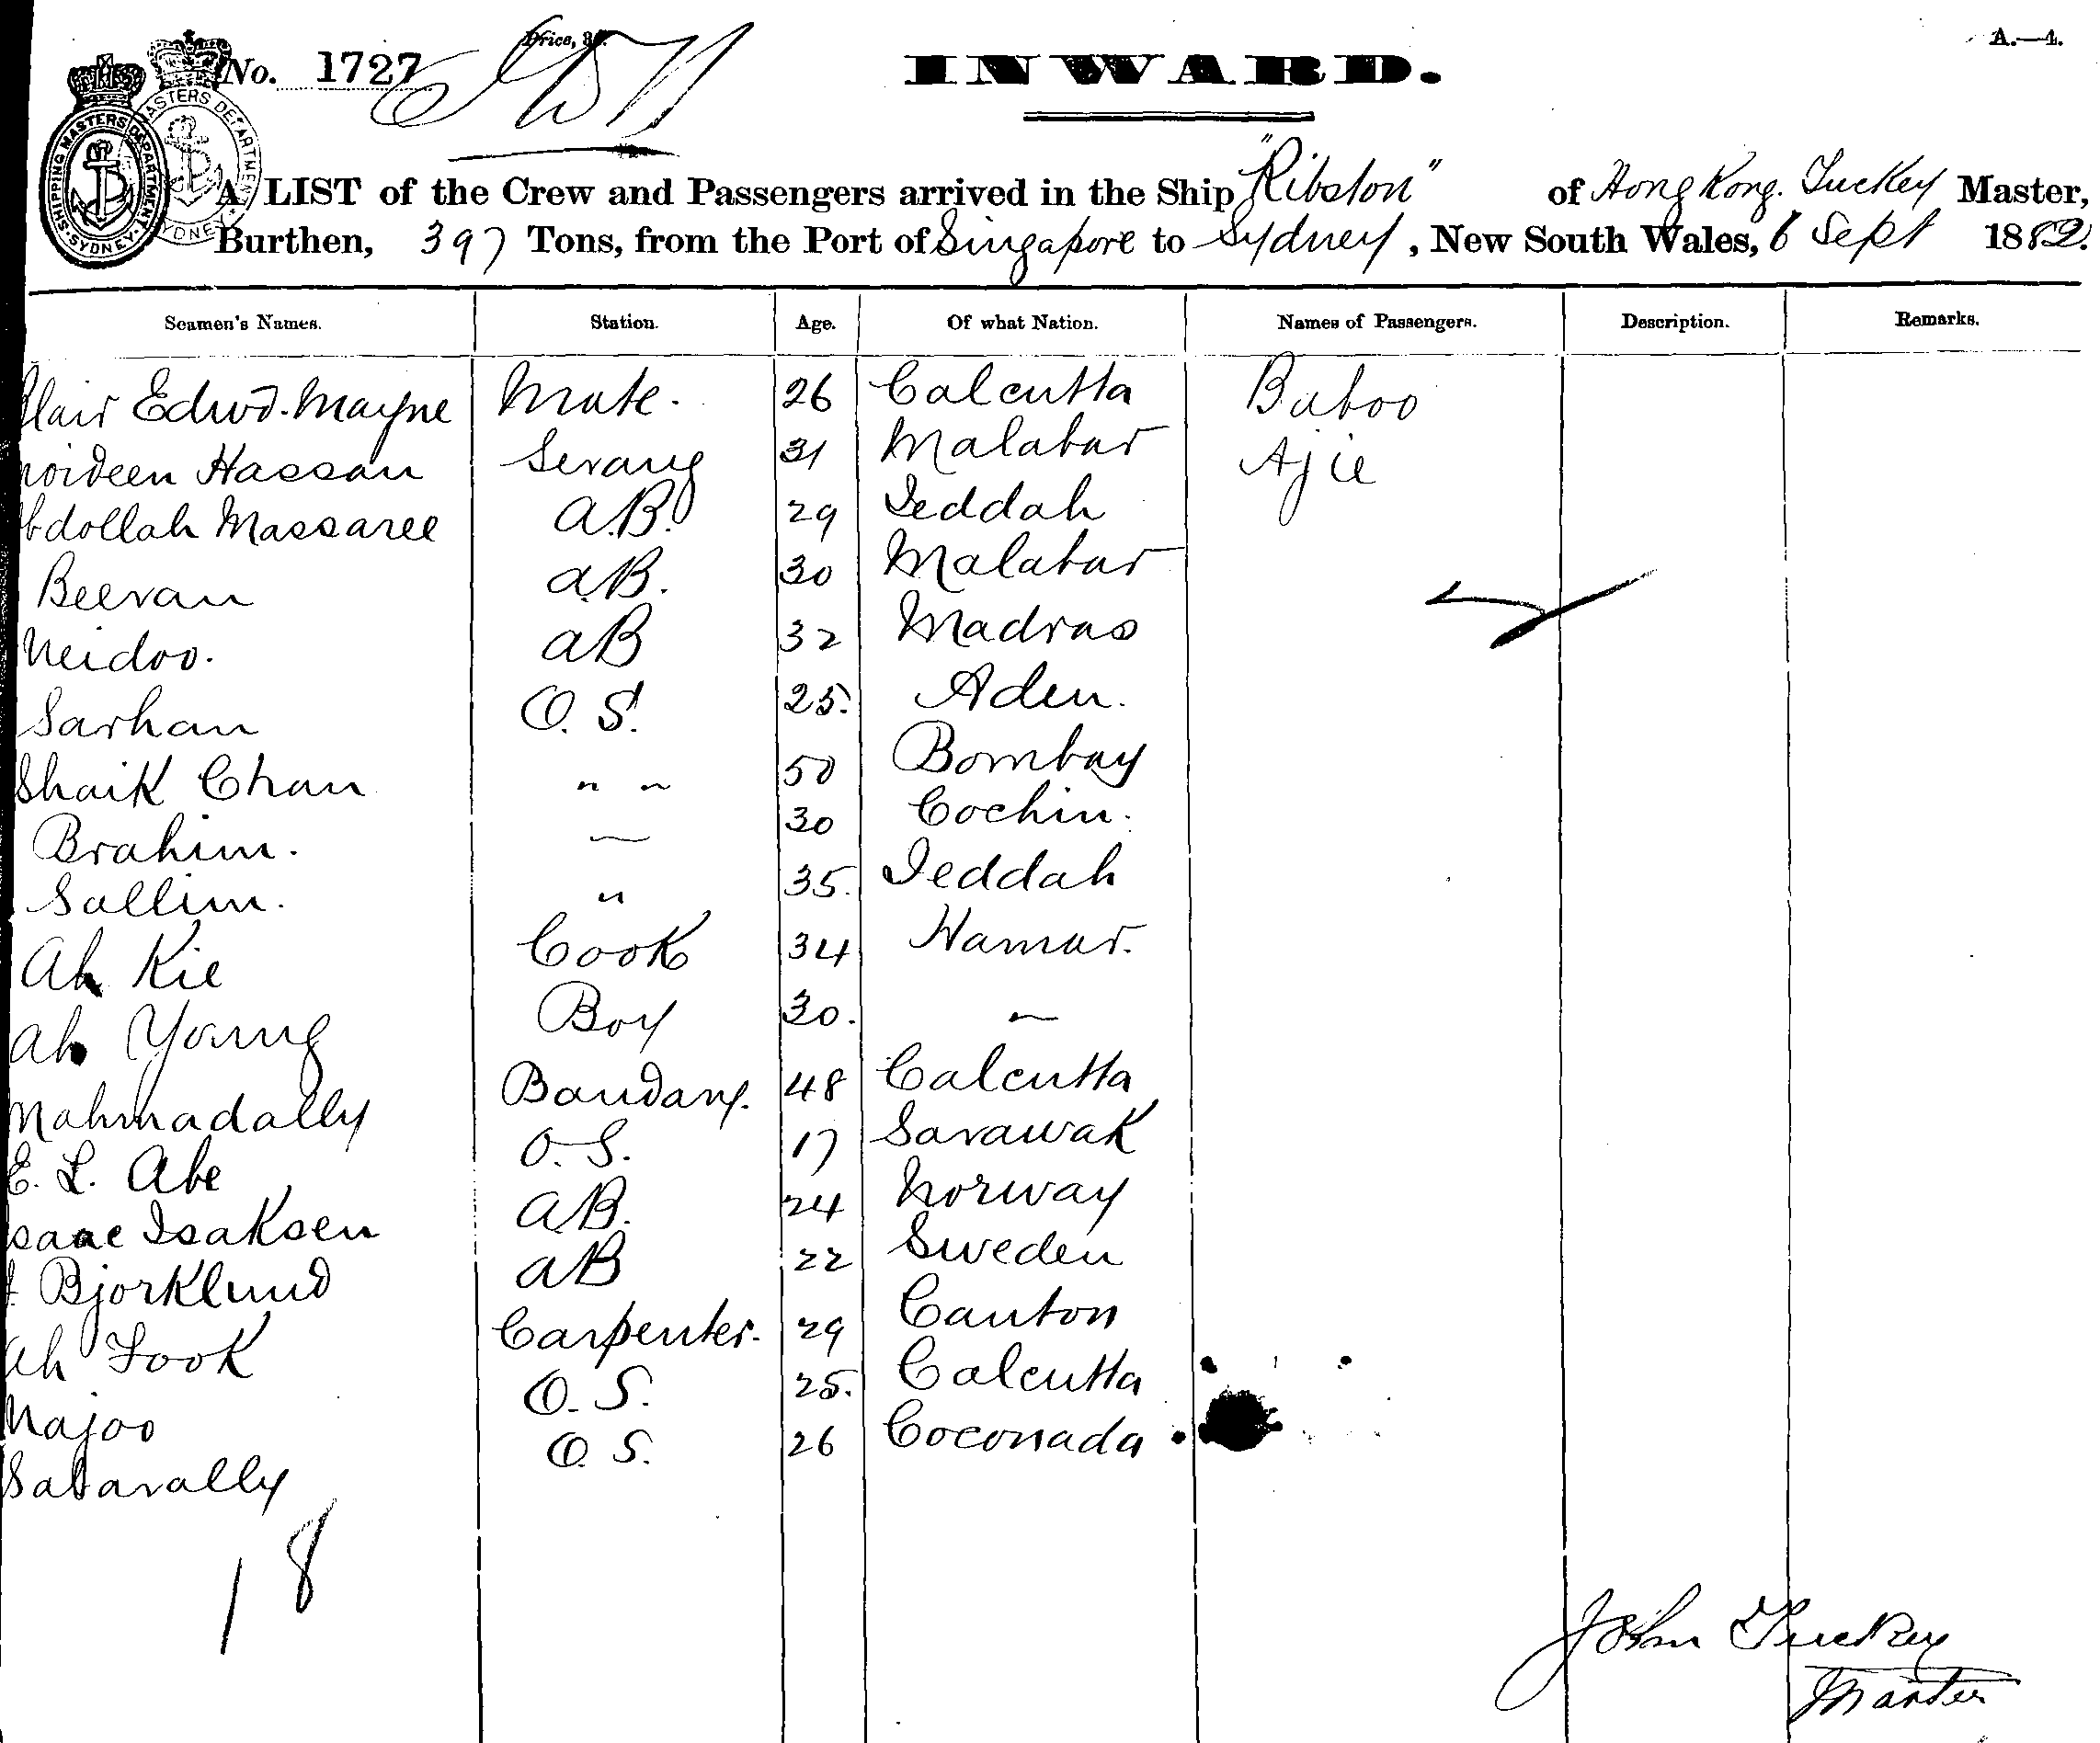 Price, 3d.
A.—4.
No. 1727
INWARD.
SHIPPING MASTERS DEPARTMENT SYDNEY
A LIST of the Crew and Passengers arrived in the Ship "Ribston" of Hong Kong. Tuckey Master,
Burthen, 397 Tons, from the Port of Singapore to Sydney, New South Wales, 6 Sept 1882.
Seamen's Names. Station. Age. Of what Nation. Names of Passengers. Description. Remarks.
Blair Edwd. Mayne Mate. 26 Calcutta Baboo
moideen Hassan Serang 31 Malabar Ajie
Abdollah Massaree A.B. 29 Jeddah
Beeran A.B. 30 Malabar
Neidoo. AB 32 Madras
Sarhan O.S. 25. Aden.
Shaik Chan " " 50 Bombay
Brahim. — 30 Cochin.
Sallim. " 35. Jeddah
Ah Kie Cook 34 Hamar.
Ah Young Boy 30. "
Mahmadally Bandary. 48 Calcutta
E. L. Abe O.S. 17 Sarawak
Isaac Isaksen AB. 24 Norway
Bjorklund AB 22 Sweden
Ah Fook Carpenter. 29 Canton
Najoo O.S. 25. Calcutta
Satarally O.S. 26 Coconada
18
John Tuckey
Master